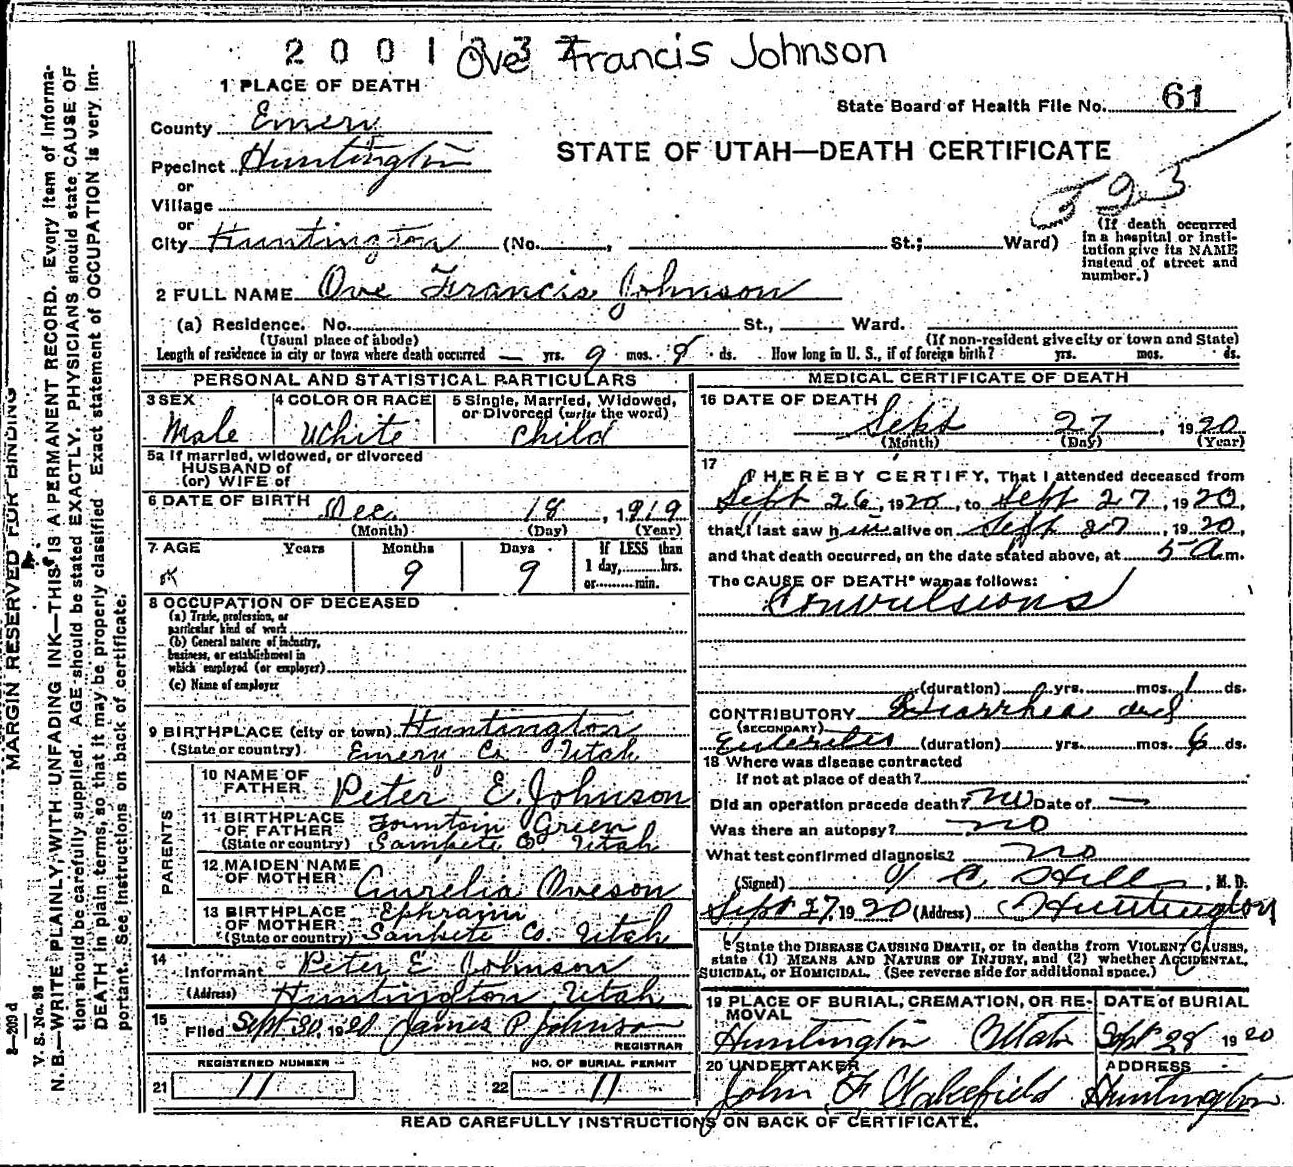 2 0 0 1 3 3 Ove Francis Johnson
1 PLACE OF DEATH
State Board of Health File No. 61
County Emery
STATE OF UTAH—DEATH CERTIFICATE
Precinct Huntington
or
Village
or
City Huntington (No. , St.; Ward)
(If death occurred in a hospital or institution give its NAME instead of street and number.)
2 FULL NAME Ove Francis Johnson
(a) Residence. No. St., Ward.
(Usual place of abode) (If non-resident give city or town and State)
Length of residence in city or town where death occurred — yrs. 9 mos. 9 ds. How long in U. S., if of foreign birth? yrs. mos. ds.
PERSONAL AND STATISTICAL PARTICULARS
3 SEX Male
4 COLOR OR RACE White
5 Single, Married, Widowed, or Divorced (write the word) Child
5a If married, widowed, or divorced
HUSBAND of
(or) WIFE of
6 DATE OF BIRTH Dec. 18, 1919
(Month) (Day) (Year)
7 AGE Years Months Days If LESS than
9 9 1 day, hrs.
or min.
8 OCCUPATION OF DECEASED
(a) Trade, profession, or
particular kind of work
(b) General nature of industry,
business, or establishment in
which employed (or employer)
(c) Name of employer
9 BIRTHPLACE (city or town) Huntington
(State or country) Emery Co. Utah
PARENTS
10 NAME OF FATHER Peter E. Johnson
11 BIRTHPLACE OF FATHER Fountain Green
(State or country) Sanpete Co. Utah
12 MAIDEN NAME OF MOTHER Aurelia Oveson
13 BIRTHPLACE OF MOTHER Ephraim
(State or country) Sanpete Co. Utah
14 Informant Peter E Johnson
(Address) Huntington, Utah
15 Filed Sept 30, 1920 James P Johnson
REGISTRAR
REGISTERED NUMBER NO. OF BURIAL PERMIT
21 11 22 11
MEDICAL CERTIFICATE OF DEATH
16 DATE OF DEATH
Sept 27, 1920
(Month) (Day) (Year)
17 I HEREBY CERTIFY, That I attended deceased from
Sept 26, 1920, to Sept 27, 1920,
that I last saw him alive on Sept 27, 1920,
and that death occurred, on the date stated above, at 5 a m.
The CAUSE OF DEATH* was as follows:
Convulsions
(duration) yrs. mos. 1 ds.
CONTRIBUTORY Diarrhea and
(SECONDARY)
Enteritis (duration) yrs. mos. 6 ds.
18 Where was disease contracted
If not at place of death?
Did an operation precede death? no Date of —
Was there an autopsy? no
What test confirmed diagnosis? no
(Signed) C Hill, M. D.
Sept 27, 1920 (Address) Huntington
*State the DISEASE CAUSING DEATH, or in deaths from VIOLENT CAUSES,
state (1) MEANS AND NATURE OF INJURY, and (2) whether ACCIDENTAL,
SUICIDAL, or HOMICIDAL. (See reverse side for additional space.)
19 PLACE OF BURIAL, CREMATION, OR REMOVAL DATE of BURIAL
Huntington Utah Sept 28 1920
20 UNDERTAKER ADDRESS
John F Wakefield Huntington
READ CAREFULLY INSTRUCTIONS ON BACK OF CERTIFICATE.
MARGIN RESERVED FOR BINDING
V. S. No. 98
N. B.—WRITE PLAINLY, WITH UNFADING INK—THIS IS A PERMANENT RECORD. Every item of information should be carefully supplied. AGE should be stated EXACTLY. PHYSICIANS should state CAUSE OF DEATH in plain terms, so that it may be properly classified. Exact statement of OCCUPATION is very important. See, instructions on back of certificate.